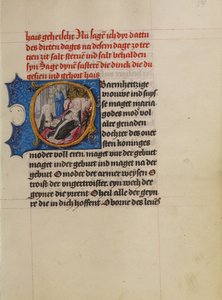 haus geheischt Nu sage ich dyr dattu
des dritten dages na desem dage zo ter
tien zijt salt sterue ind salt behalden
syn dage dyne susteré die dinck die du
gesien ind gehort haus
Barmhertzige
vrouwe ind suysse
maget maria
godes mod vol
alre genaden
dochter des ouersten
koninges
moder voll eren maget vur der geburt
maget in der geburt ind maget na der
geburt O moder der armer weysen O
troist der ungetroister eyn wech der
gheyner die yrrent O heil alle der geyn
re die in dich hoffent O borne des leues